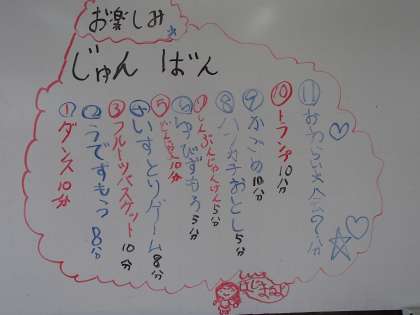 お楽しみ
じゅんばん
①ダンス10分
②うですもう8分
③フルーツバスケット10分
④いすとりゲーム8分
⑤
10分
⑥ゆびずもう5分
⑦しんぶんじゃんけん5分
⑧ハンカチおとし5分
⑨かごめ10分
⑩トランプ10分
⑪
はじまるよ